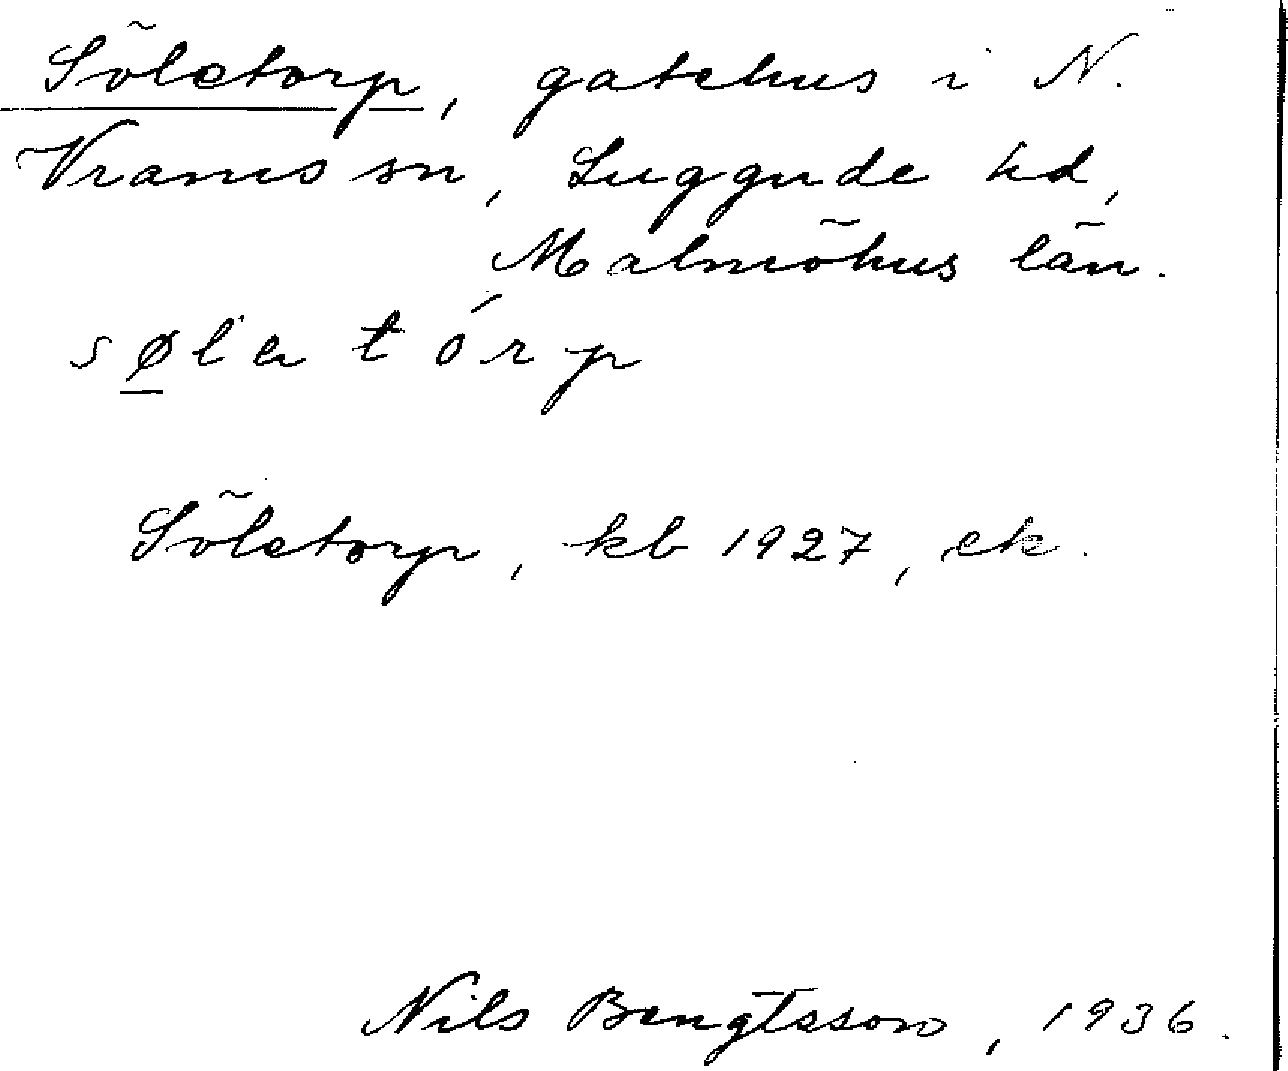 Söletorp, gatehus i N.
Vrams sn, Luggude hd,
Malmöhus län.
søla tórp
Söletorp, kb 1927, ek.
Nils Bengtsson, 1936.